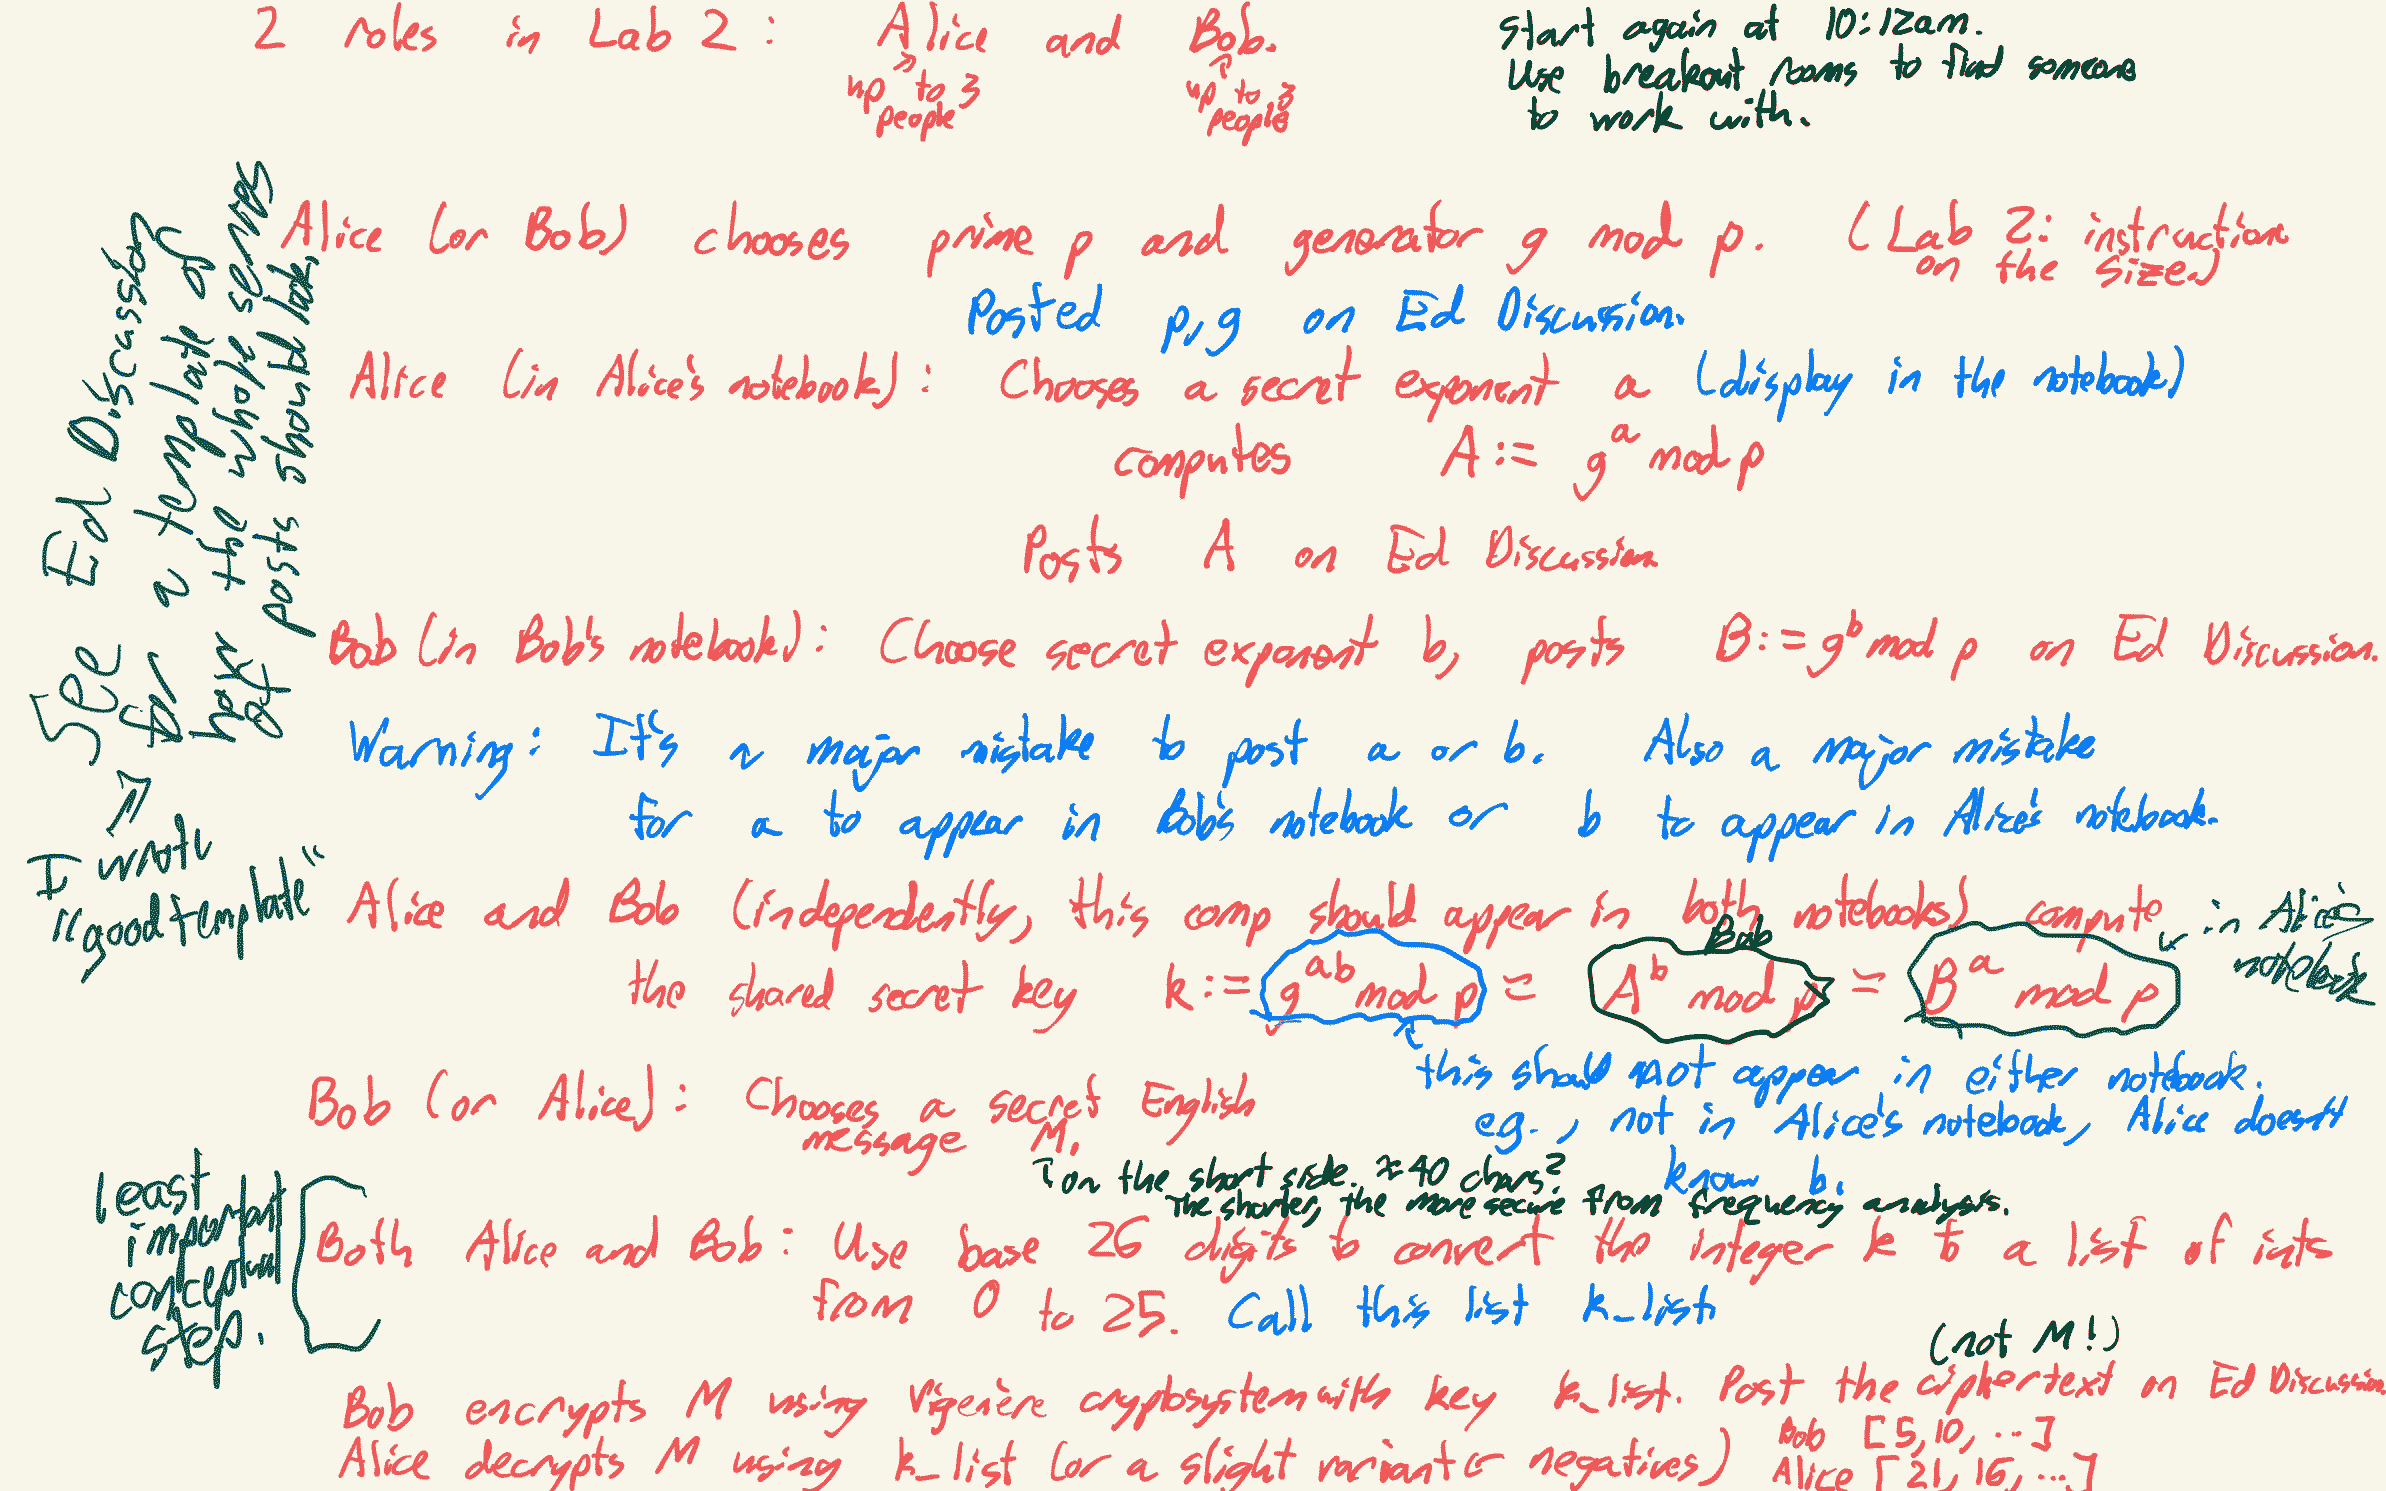 2 roles in Lab 2: Alice and Bob.
up to 3
people
up to 3
people
Start again at 10:12am.
Use breakout rooms to find someone
to work with.
Alice (or Bob) chooses prime p and generator g mod p. (Lab 2: instructions
on the size.)
Posted p, g on Ed Discussion.
Alice (in Alice's notebook): Chooses a secret exponent a (display in the notebook)
computes A := g^a mod p
Posts A on Ed Discussion
Bob (in Bob's notebook): Choose secret exponent b, posts B := g^b mod p on Ed Discussion.
Warning: It's a major mistake to post a or b. Also a major mistake
for a to appear in Bob's notebook or b to appear in Alice's notebook.
See Ed Discussion
for a template of
how the whole series
of posts should look.
⇒
I wrote
"good template"
Alice and Bob (independently, this comp should appear in both notebooks) compute
the shared secret key k := g^{ab} mod p = A^b mod p = B^a mod p
Bob
in Alice's
notebook
this should not appear in either notebook.
e.g., not in Alice's notebook, Alice doesn't
know b.
Bob (or Alice): Chooses a secret English
message M.
↑ on the short side. ≈ 40 chars?
The shorter, the more secure from frequency analysis.
least
important
conceptual
step.
Both Alice and Bob: Use base 26 digits to convert the integer k to a list of ints
from 0 to 25. Call this list k_list
(not M!)
Bob encrypts M using Vigenère cryptosystem with key k_list. Post the ciphertext on Ed Discussion
Alice decrypts M using k_list (or a slight variant ← negatives)
Bob [5,10, ...]
Alice [21, 16, ...]